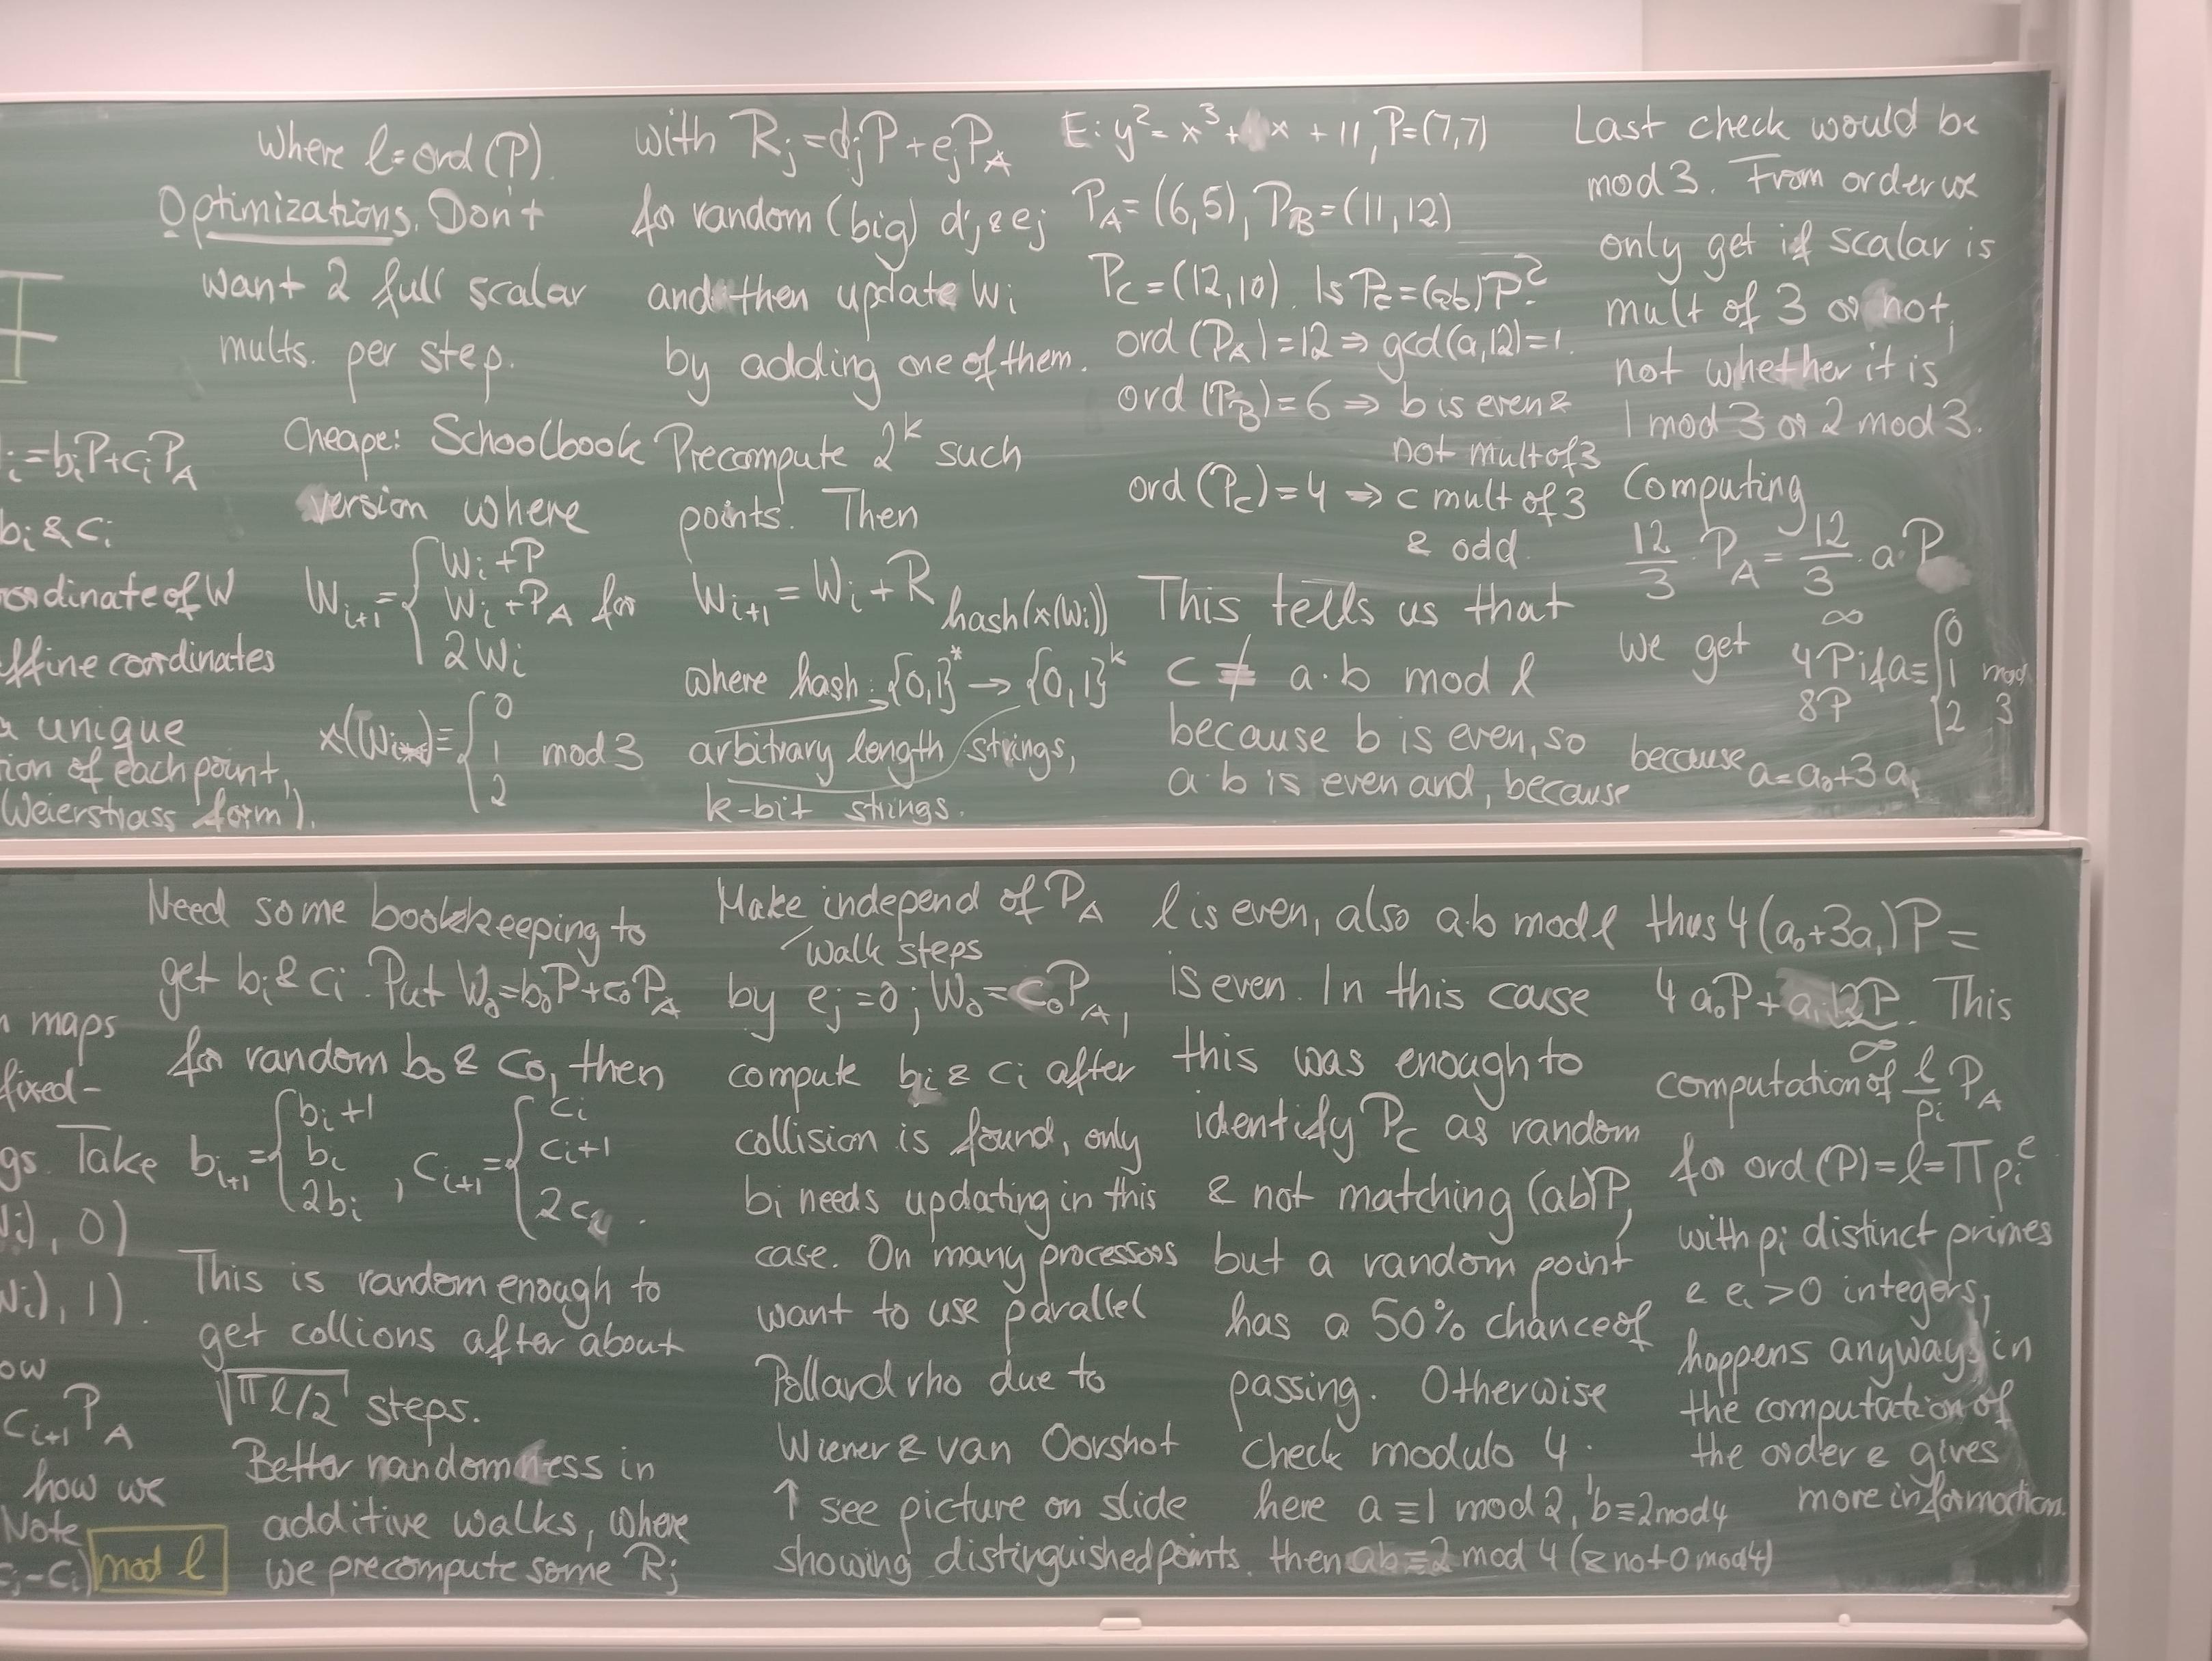 Where l = ord(P).
Optimizations. Don't
want 2 full scalar
mults. per step.
Cheape: Schoolbook
version where
W_{i+1} = { W_i + P
W_i + P_A for
2W_i
x(W_i) ≡ { 0
1 mod 3
2
with R_j = d_jP + e_jP_A
for random (big) d_j & e_j
and then update W_i
by adding one of them.
Precompute 2^k such
points. Then
W_{i+1} = W_i + R_{hash(x(W_i))}
where hash: {0,1}^* → {0,1}^k
arbitrary length strings,
k-bit strings.
E: y² = x³ + x + 11, P=(7,7)
P_A = (6,5), P_B = (11,12)
P_C = (12,10). Is P_C = (ab)P?
ord (P_A) = 12 ⇒ gcd(a,12)=1.
ord (P_B) = 6 ⇒ b is even &
not mult of 3
ord (P_C) = 4 ⇒ c mult of 3
& odd.
This tells us that
c ≢ a·b mod l
because b is even, so
a·b is even and, because
Last check would be
mod 3. From order we
only get if scalar is
mult of 3 or not,
not whether it is
1 mod 3 or 2 mod 3.
Computing
12/3 · P_A = 12/3 · a·P
we get ∞
4P if a ≡ { 0
1 mod 3
8P 2
because a = a_0 + 3a_1
i = b_iP + c_iP_A
b_i & c_i
ordinate of W
ffine cordinates
unique
ion of each point,
(Weierstrass form).
Need some bookkeeping to
get b_i & c_i. Put W_0 = b_0P + c_0P_A
for random b_0 & c_0, then
b_{i+1} = { b_i + 1
b_i
2b_i , c_{i+1} = { c_i
c_i + 1
2c_i .
This is random enough to
get collions after about
√(πl/2) steps.
Better randomness in
additive walks, where
we precompute some R_j
Make independ of P_A
walk steps
by e_j = 0; W_0 = c_0P_A,
compute b_i & c_i after
collision is found, only
b_i needs updating in this
case. On many processors
want to use parallel
Pollard rho due to
Wiener & van Oorshot
↑ see picture on slide
showing distinguished points.
l is even, also a·b mod l
is even. In this case
this was enough to
identify P_C as random
& not matching (ab)P,
but a random point
has a 50% chance of
passing. Otherwise
check modulo 4.
here a ≡ 1 mod 2, b ≡ 2 mod 4
then ab ≡ 2 mod 4 (& not 0 mod 4)
thus 4(a_0 + 3a_1)P =
4a_0P + a_1 12P. This
∞
computation of l/p_i P_A
for ord(P) = l = ∏ p_i^e
with p_i distinct primes
& e_i > 0 integers,
happens anyways in
the computation of
the order & gives
more information.
maps
fixed-
gs. Take
, 0)
, 1).
ow
c_{i+1} P_A
how we
Note
c_j - c_i) mod l